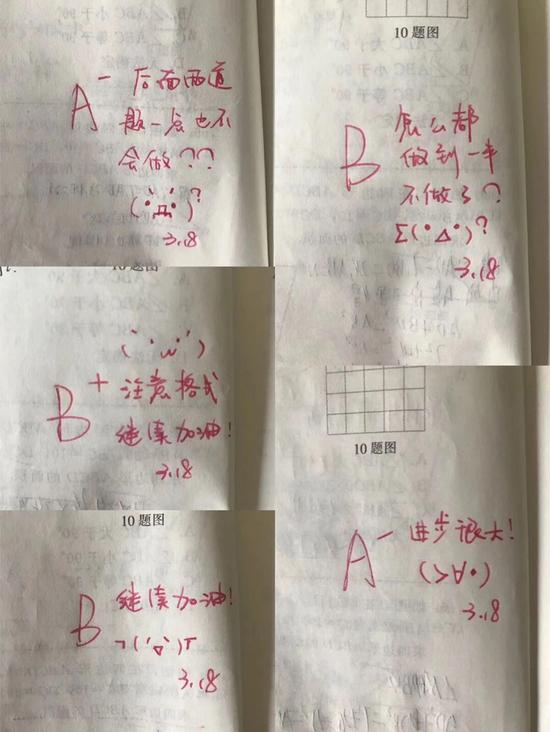 A⁻ 后面两道
题一点也不
会做??
3.18
10题图
B 怎么都
做到一半
不做了?
Σ(°△°)?
3.18
B⁺ 注意格式
继续加油!
3.18
10题图
A⁻ 进步很大!
(>∀•)
3.18
10题图
B 继续加油!
3.18